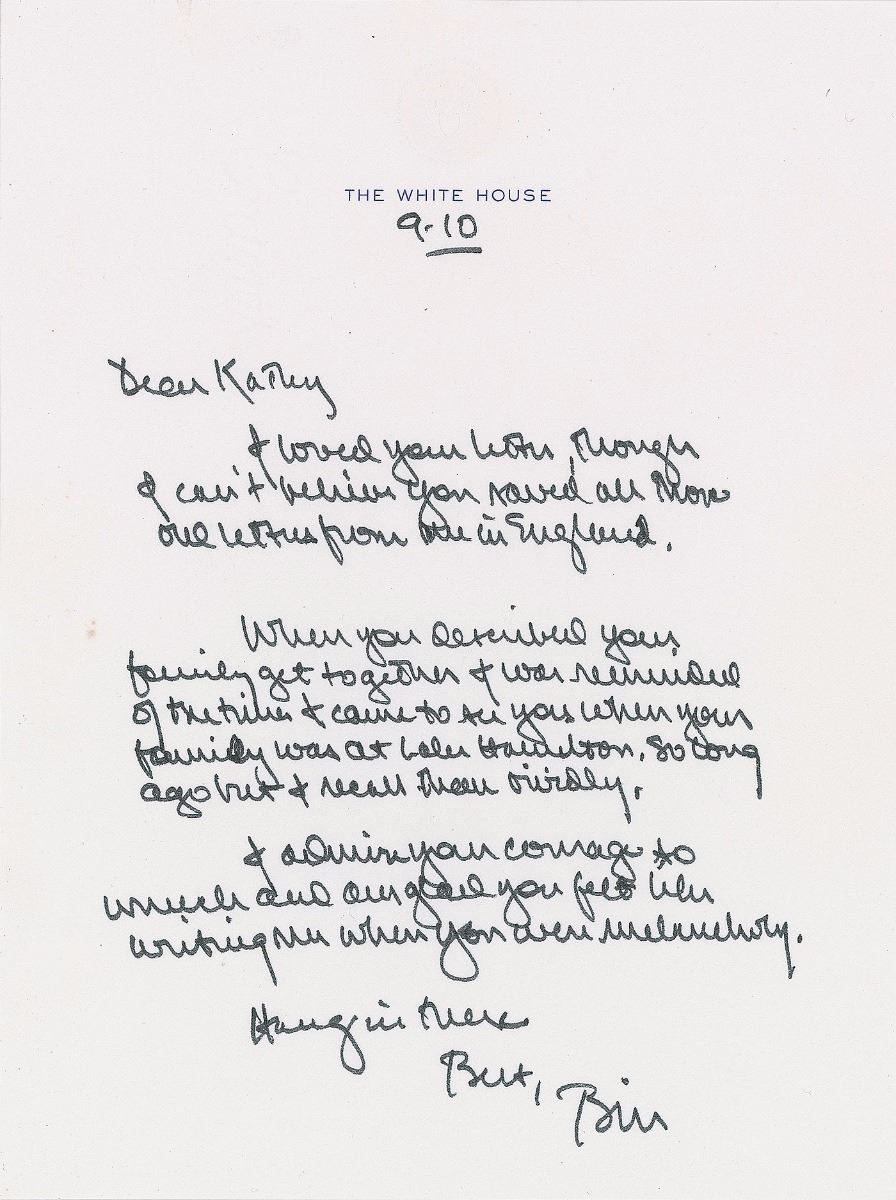 THE WHITE HOUSE
9-10
Dear Kathy
I loved your letter, though
I can't believe you saved all those
old letters from me in England.
When you described your
family get together I was reminded
of the times I came to see you when your
family was at Lake Hamilton. So long
ago but I recall them vividly.
I admire your courage so
much and am glad you felt like
writing me when you were melancholy.
Hang in there
Best,
Bill